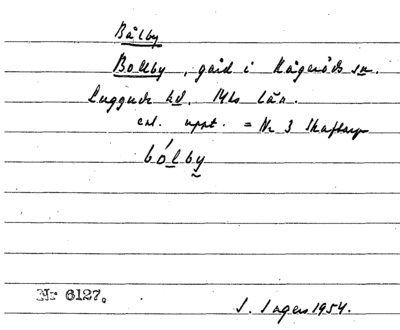 Bålby
Bollby, gård i Kågeröds sn.
Luggude hd. Mlhs län.
enl. uppt. = Nr 3 Skaftarp
bólby
Nr 6127.
S. Ingers 1954.